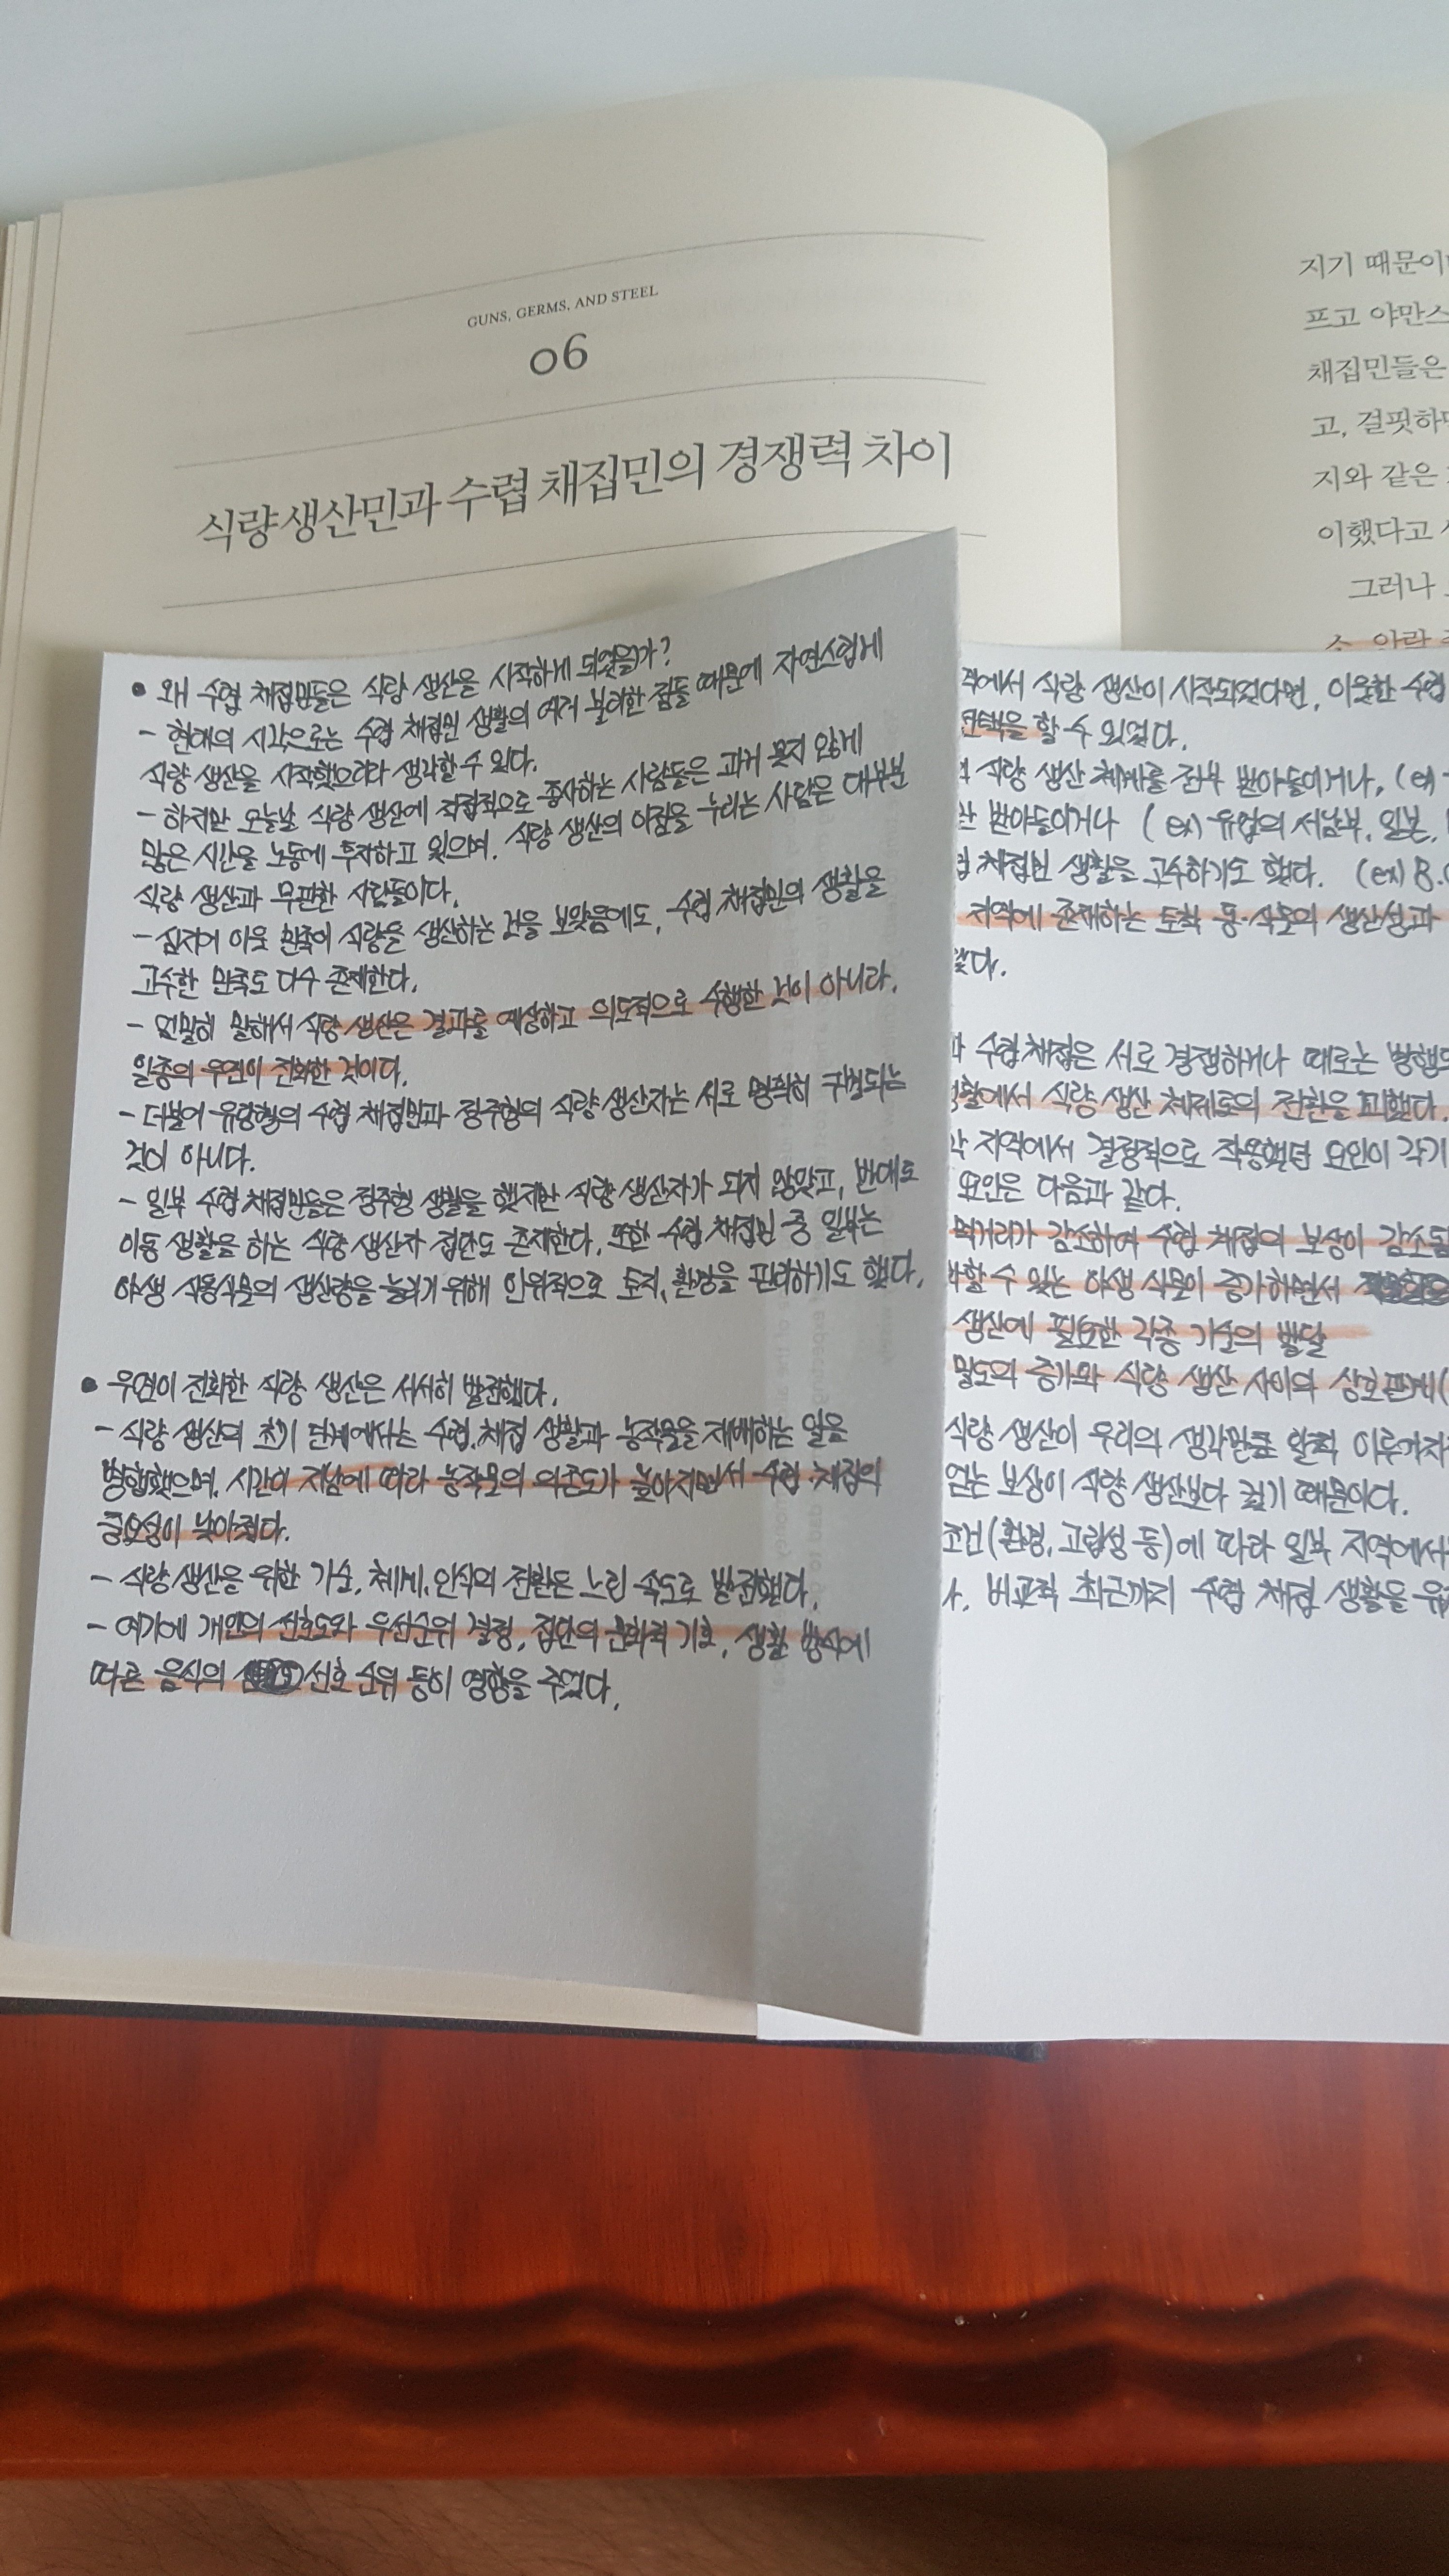 GUNS, GERMS, AND STEEL
06
식량 생산민과 수렵 채집민의 경쟁력 차이
• 왜 수렵 채집민들은 식량 생산을 시작하게 되었을까?
- 현대의 시각으로는 수렵 채집민 생활의 여러 불리한 점들 때문에 자연스럽게
식량 생산을 시작했으리라 생각할 수 있다.
- 하지만 오늘날 식량 생산에 직접적으로 종사하는 사람들은 과거 못지 않게
많은 시간을 노동에 투자하고 있으며, 식량 생산의 이점을 누리는 사람은 대부분
식량 생산과 무관한 사람들이다.
- 심지어 이웃 민족이 식량을 생산하는 것을 보았음에도, 수렵 채집민의 생활을
고수한 민족도 다수 존재한다.
- 엄밀히 말해서 식량 생산은 결과를 예상하고 의도적으로 수행한 것이 아니라,
일종의 우연이 진화한 것이다.
- 더불어 유랑형의 수렵 채집민과 정주형의 식량 생산자는 서로 명확히 구별되는
것이 아니다.
- 일부 수렵 채집민들은 정주형 생활을 했지만 식량 생산자가 되지 않았고, 반대로
이동 생활을 하는 식량 생산자 집단도 존재한다. 또한 수렵 채집민 중 일부는
야생 식용식물의 생산량을 늘리기 위해 인위적으로 토지, 환경을 관리하기도 했다.
• 우연이 진화한 식량 생산은 서서히 발전했다.
- 식량 생산의 초기 단계에서는 수렵, 채집 생활과 농작물을 재배하는 일을
병합했으며, 시간이 지남에 따라 농작물의 의존도가 높아지면서 수렵·채집의
중요성이 낮아졌다.
- 식량 생산을 위한 기술, 체계, 인식의 전환은 느린 속도로 발전했다.
- 여기에 개인의 선호도와 우선순위 결정, 집단의 문화적 기호, 생활 방식에
따른 음식의 선호 순위 등이 영향을 주었다.
지기 때문이
프고 야만스
채집민들은
고, 걸핏하면
지와 같은
이했다고
그러나
에서 식량 생산이 시작되었다면, 이웃한 수렵
선택을 할 수 있었다.
식량 생산 체계를 전부 받아들이거나, (ex
받아들이거나 (ex) 유럽의 서남부, 일본,
채집민 생활을 고수하기도 했다. (ex) B.
지역에 존재하는 토착 동·식물의 생산성과
다.
수렵 채집은 서로 경쟁하거나 때로는 병행
에서 식량 생산 체제로의 전환을 피했다.
각 지역에서 결정적으로 작용했던 요인이 각기
요인은 다음과 같다.
먹거리가 감소하여 수렵 채집의 보상이 감소됨
할 수 있는 야생 식물이 증가하면서
생산에 필요한 각종 기술의 발달
밀도의 증가와 식량 생산 사이의 상호관계(
식량 생산이 우리의 생각만큼 일찍 이루어지
얻는 보상이 식량 생산보다 컸기 때문이다.
조건(환경, 고립성 등)에 따라 일부 지역에서
비교적 최근까지 수렵 채집 생활을